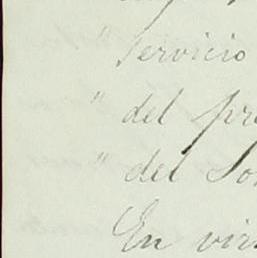 " Servicio
" del pr
" del So
En vir